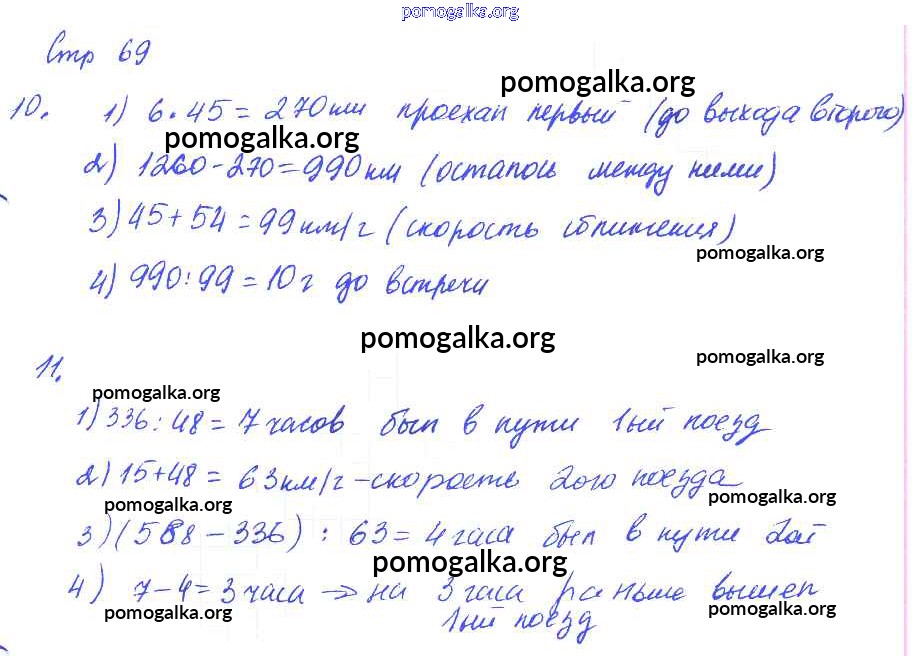 pomogalka.org
Стр 69
pomogalka.org
10. 1) 6·45=270км проехал первый (до выхода второго)
pomogalka.org
2) 1260-270=990км (осталось между ними)
3) 45+54=99км/г (скорость сближения)
pomogalka.org
4) 990:99=10г до встречи
pomogalka.org
pomogalka.org
11.
pomogalka.org
1) 336:48=7 часов был в пути 1ый поезд
2) 15+48= 63км/г-скорость 2ого поезда
pomogalka.org
pomogalka.org
3) (588-336) : 63=4 часа был в пути 2ой
pomogalka.org
4) 7-4=3 часа → на 3 часа раньше вышел
pomogalka.org
pomogalka.org
1ый поезд